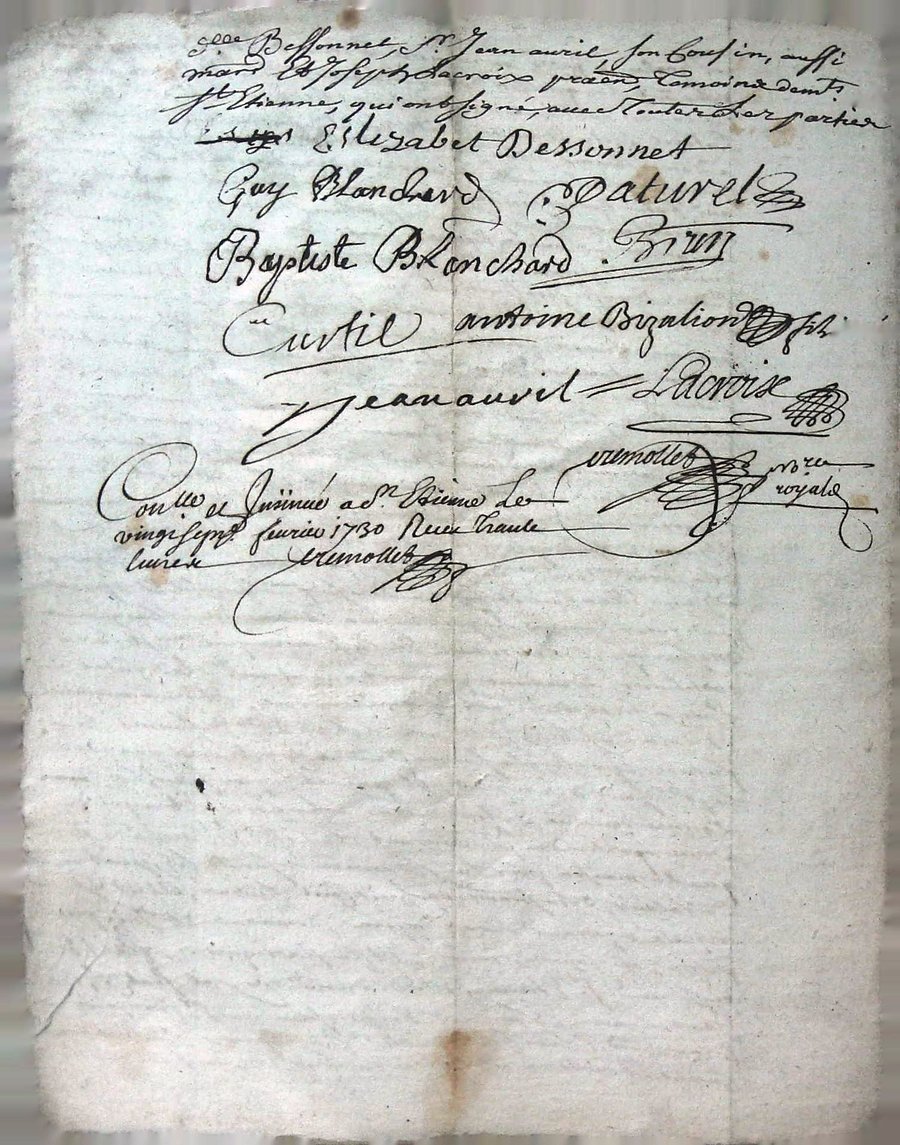 Dlle Bessonnet, Sr. Jean auril, son Cousin, aussi
mard. Et Joseph Lacroix praēn, temoins demts
St Etienne, qui ont signé, avec toutes les parties
Elizabet Bessonnet
Guy Blanchard Paturel
Baptiste Blanchard Brun
Curtil antoine Bizalion fils
Jean auril Lacroix
Cremollet nore
royale
Conlle et Insinué a St Etienne le
vingt sept fevrier 1730 Receu trante
livres Cremollet